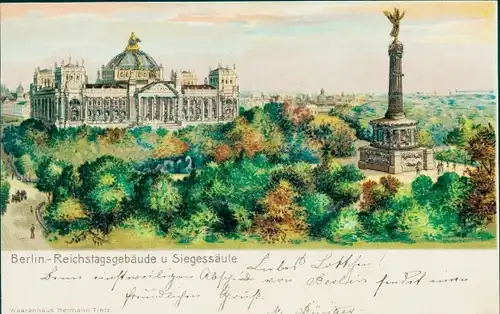 Berlin.- Reichstagsgebäude u Siegessäule
Liebes Lottchen!
Beim einstweiligen Abschied von Berlin sendet einen
freundlichen Gruß.
Waarenhaus Hermann Tietz.